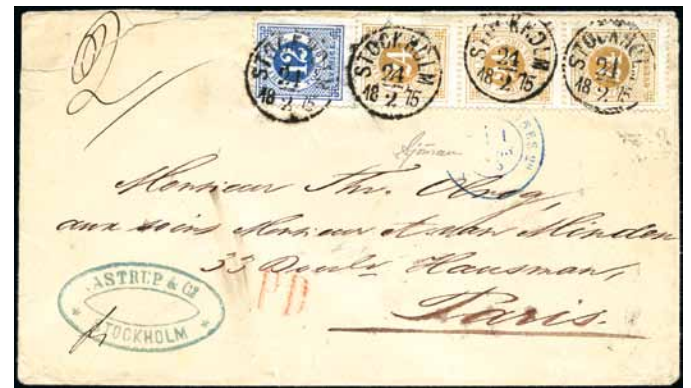 2
12
24
24
24
STOCKHOLM
21
18 2 75
STOCKHOLM
21
18 2 75
STOCKHOLM
21
18 2 75
STOCKHOLM
21
18 2 75
Monsieur Thr.
aux soins Monsieur A. van Minden
33 Boulv Hausman,
Paris.
PD
ASTRUP & Cº
STOCKHOLM